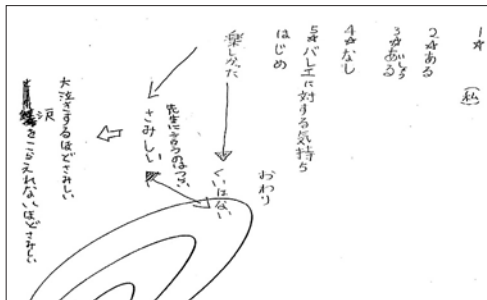 1☆ (私)
2☆ある
3☆ある
4☆なし
5☆バレエに対する気持ち
はじめ おわり
楽しかった くいはない
先生に言うのはつらい
さみしい
大泣きするほどさみしい
涙
をこらえれないほどさみしい